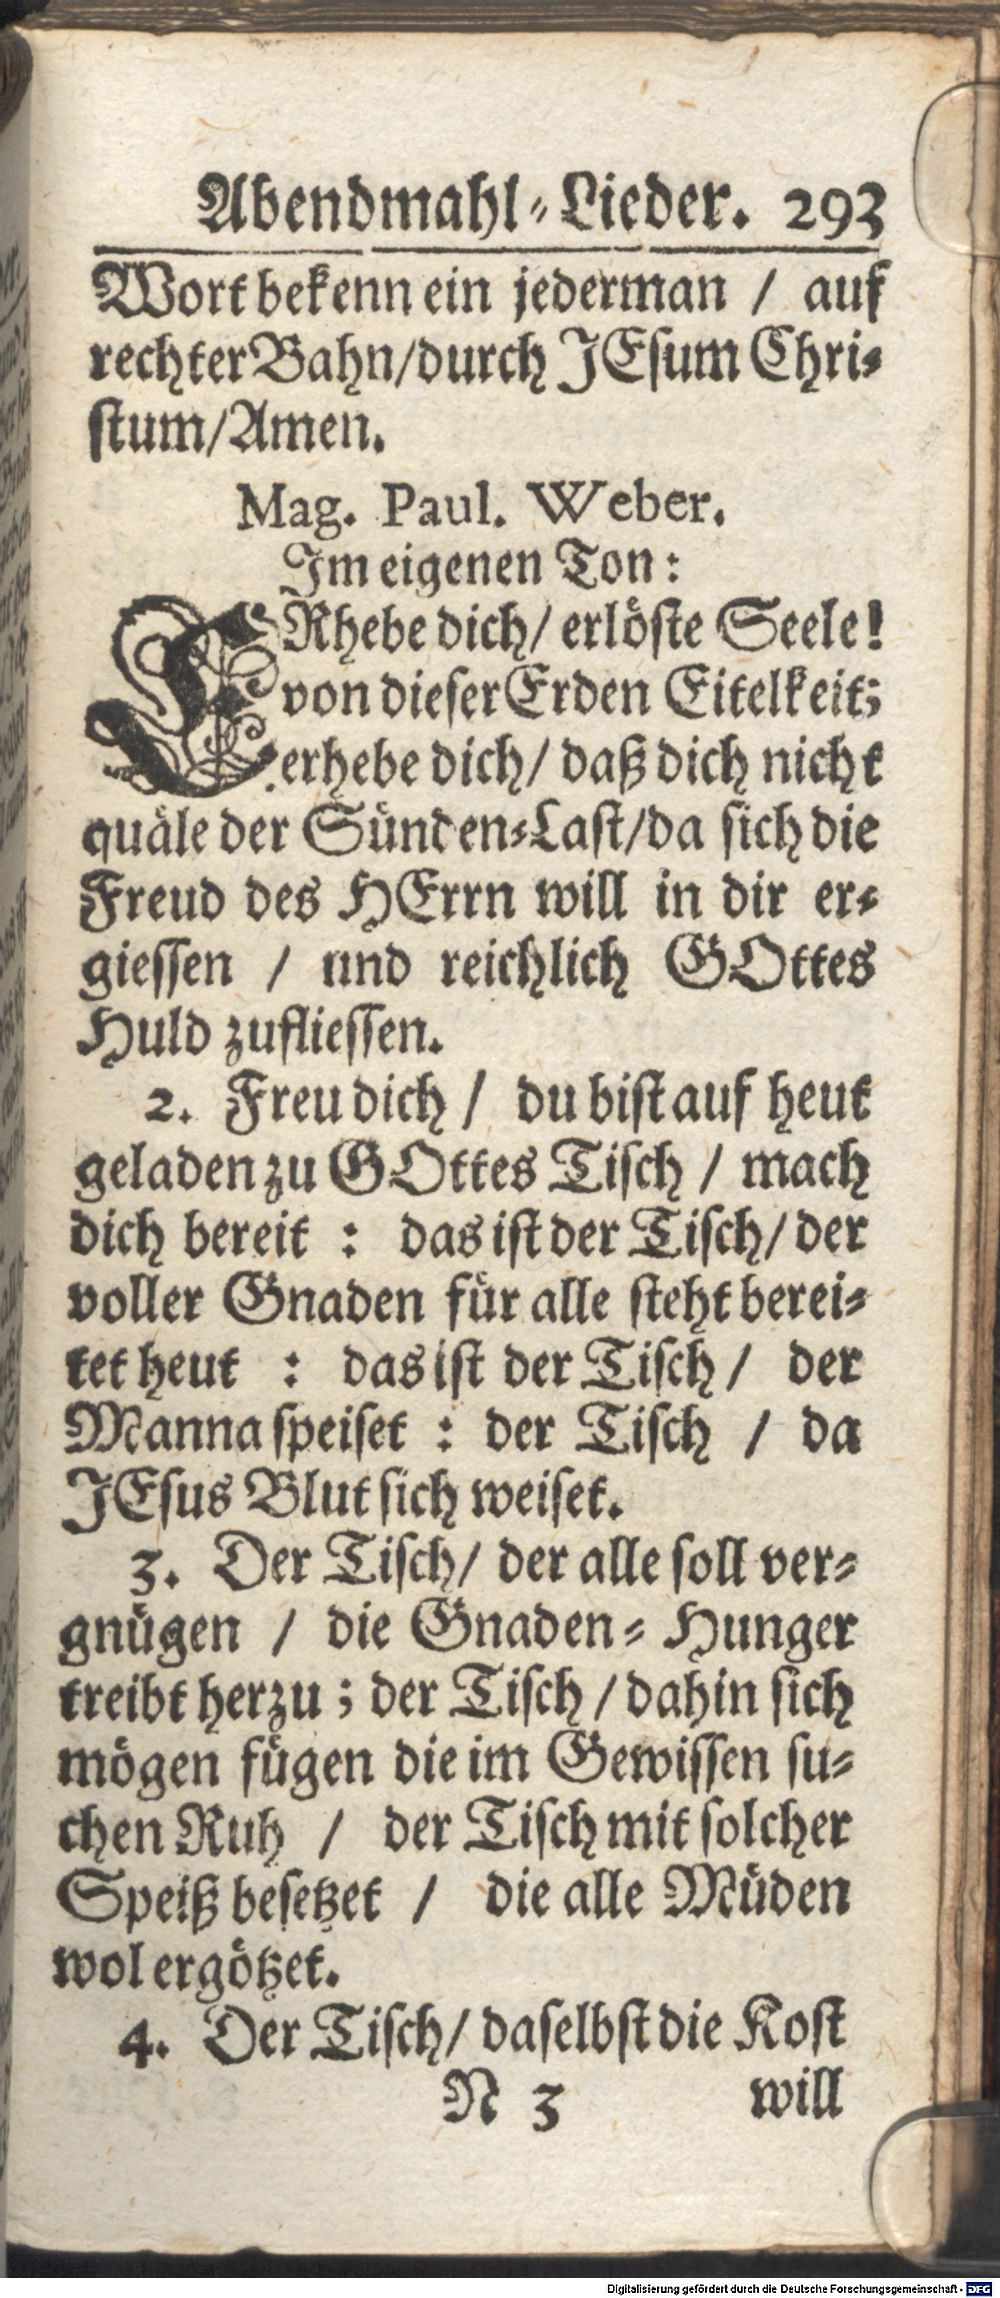 Abendmahl-Lieder. 293
Wort bekenn ein jederman / auf
rechter Bahn/durch JEsum Chri-
stum/Amen.
Mag. Paul. Weber.
Im eigenen Ton:
ERhebe dich/ erlöste Seele!
von dieser Erden Eitelkeit;
erhebe dich/ daß dich nicht
quäle der Sünden-Last/da sich die
Freud des HErrn will in dir er-
giessen / und reichlich GOttes
Huld zufliessen.
2. Freu dich / du bist auf heut
geladen zu GOttes Tisch / mach
dich bereit : das ist der Tisch/ der
voller Gnaden für alle steht berei-
tet heut : das ist der Tisch / der
Manna speiset : der Tisch / da
JEsus Blut sich weiset.
3. Der Tisch/ der alle soll ver-
gnügen / die Gnaden-Hunger
treibt herzu ; der Tisch / dahin sich
mögen fügen die im Gewissen su-
chen Ruh / der Tisch mit solcher
Speiß besetzet / die alle Müden
wol ergötzet.
4. Der Tisch/ daselbst die Kost
N 3 will
Digitalisierung gefördert durch die Deutsche Forschungsgemeinschaft - DFG